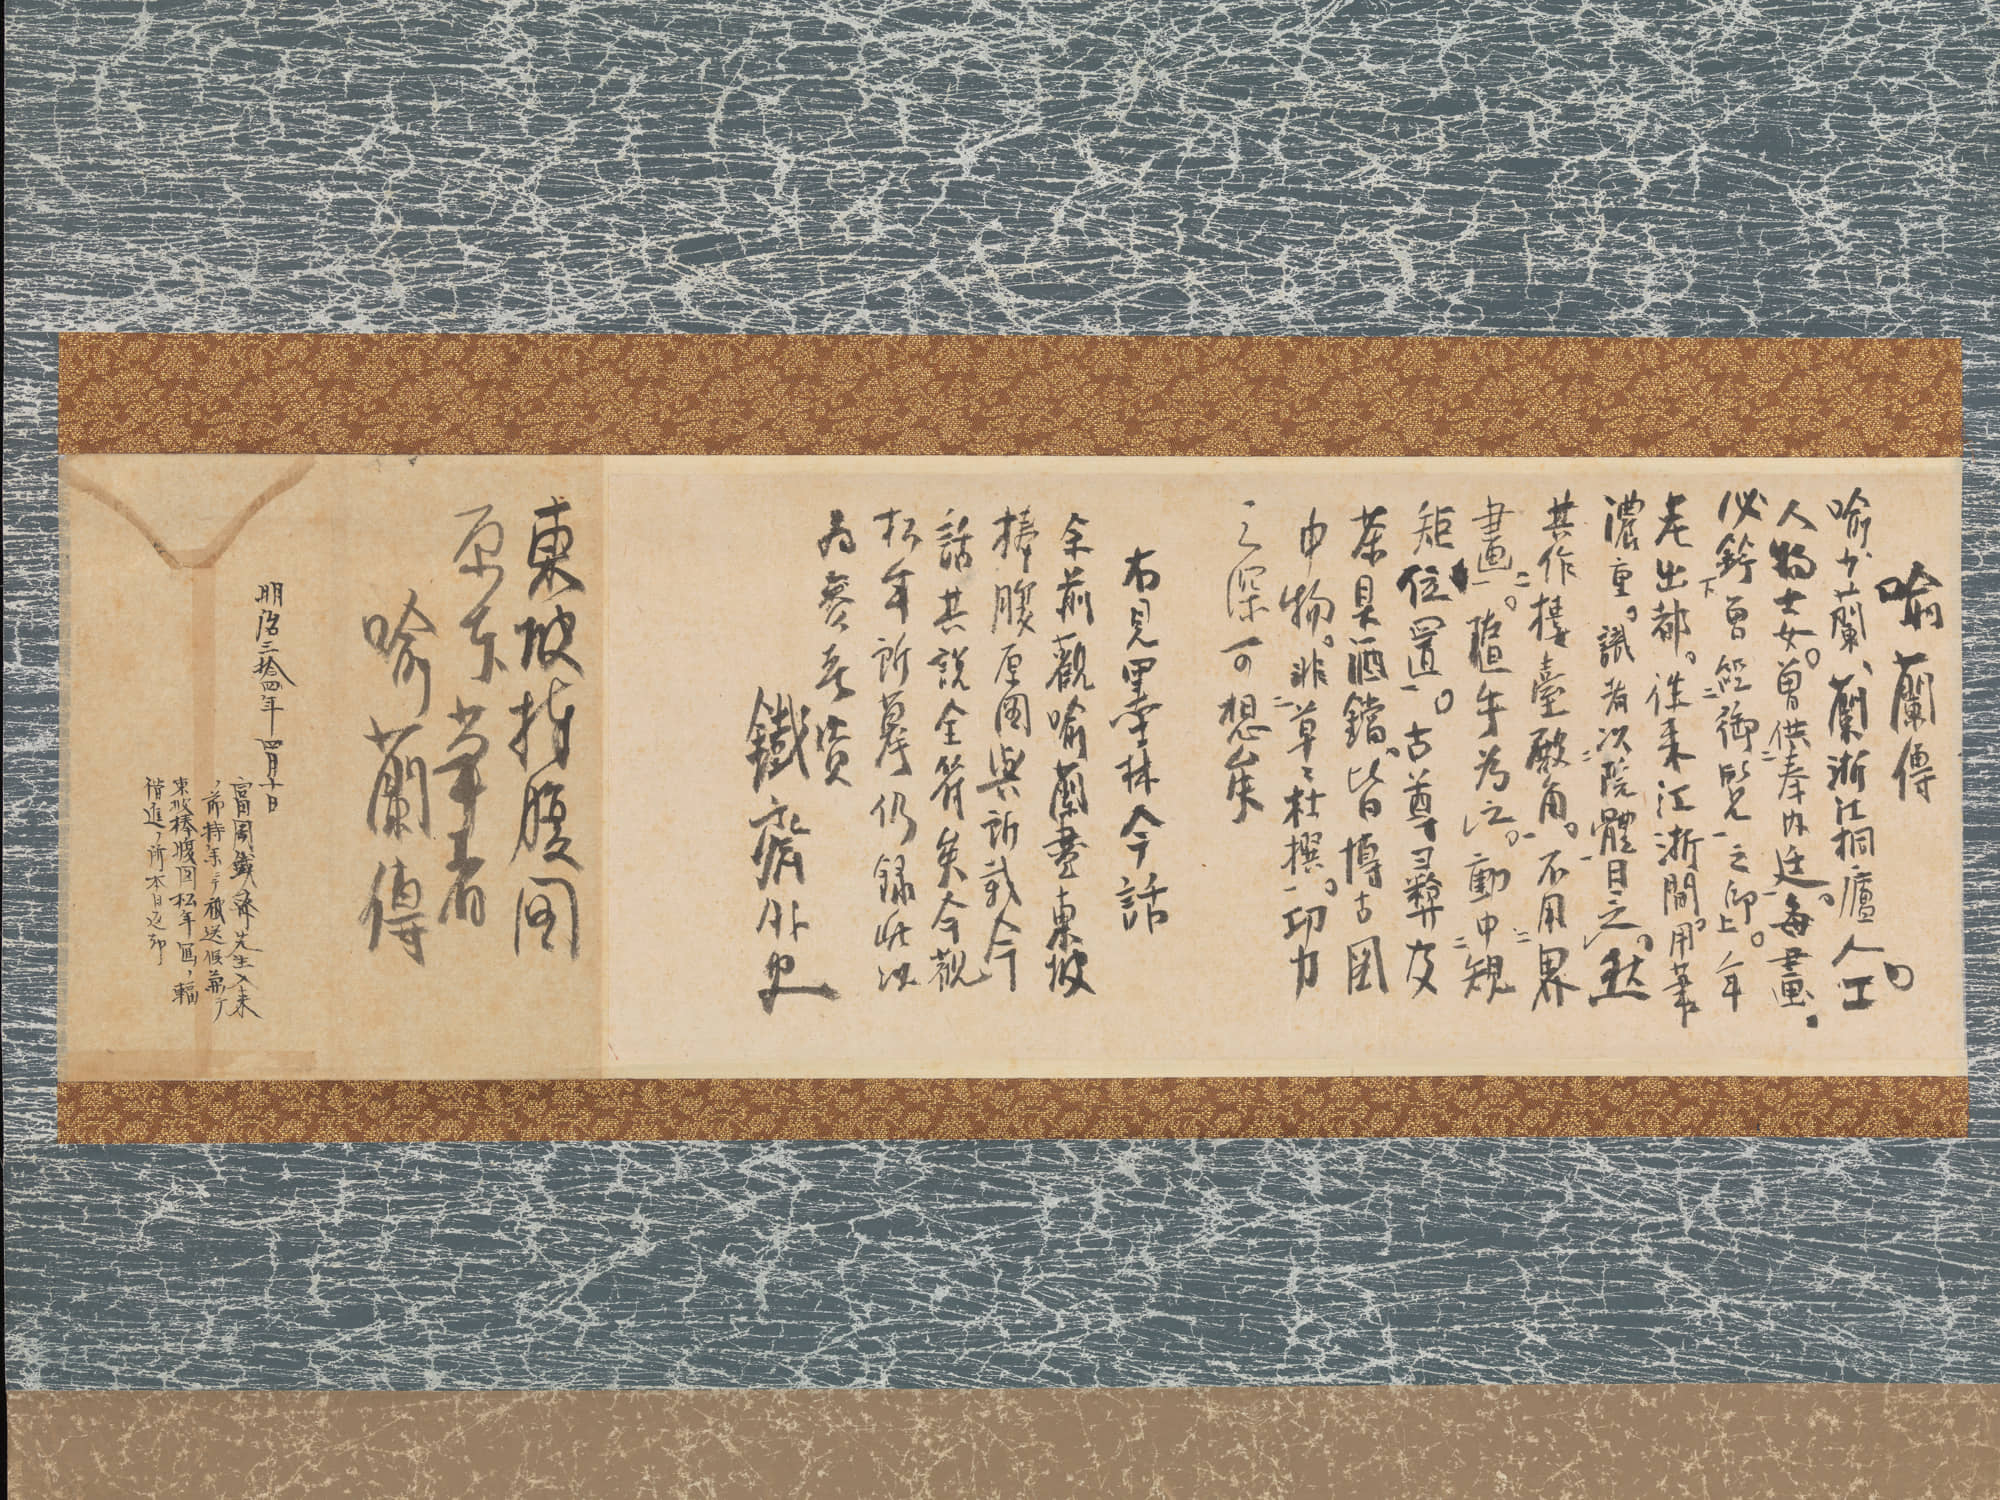 喻蘭傳
喻少蘭、蘭浙江桐廬人。工
人物士女。曾供奉内廷。每畫
必鈐曾經御覽之印。上年
老出都。往来江浙間。用筆
濃重。識者以院體目之。然
其作樓臺殿角。不用界
畫。隨手為之。動中規
矩位置。古尊彛及
茶具酒鐺。皆博古圖
中物。非草々杜撰。功力
之深可想矣
右見墨林今話
余前觀喻蘭畫東坡
捧腹原圖與所載今
話其説全符矣今観
松年所摹仍録此以
為參考資
鐵齋外史
東坡捧腹圖
原本筆者
喻蘭傳
明治三拾四年四月十日
富岡鐵齋先生入来
ノ節持手テ被送候而テ
東坡捧腹図松年画ノ幅
借進ノ所本日返却